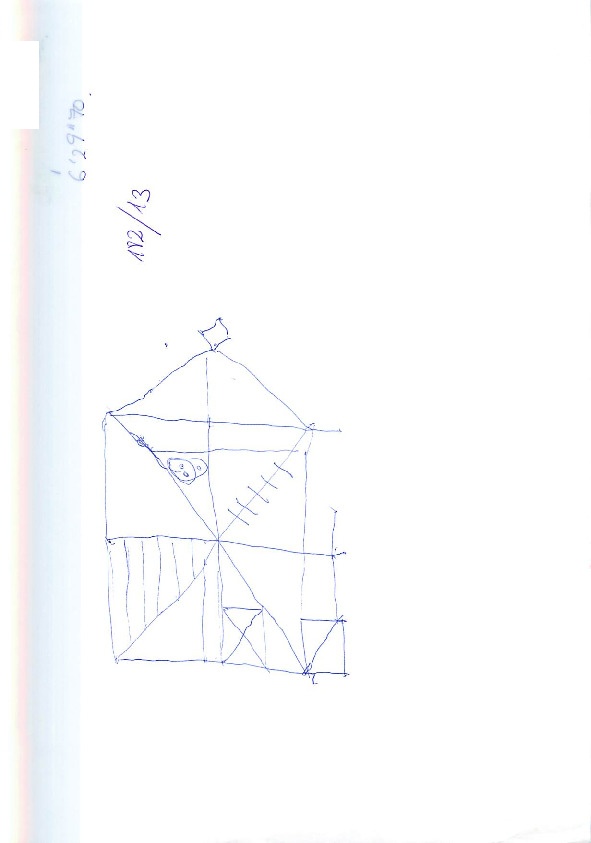 6'29"70.
182/13